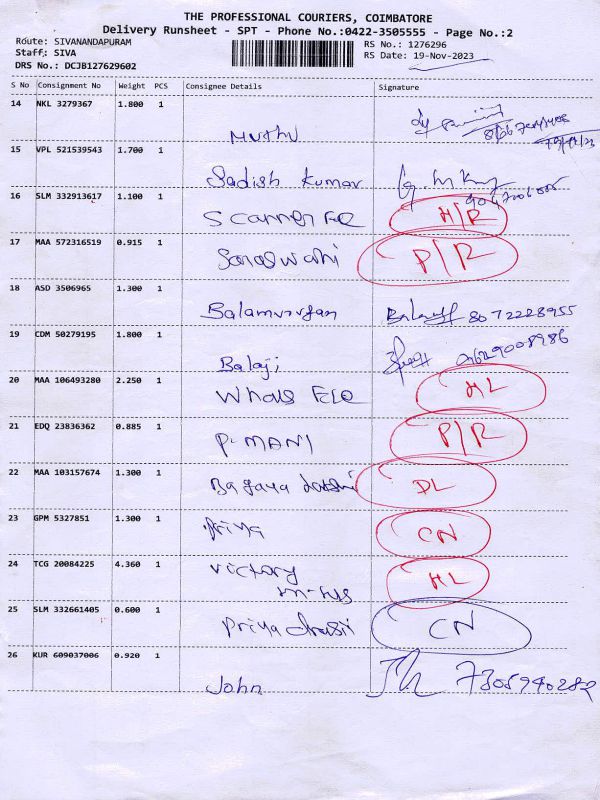 THE PROFESSIONAL COURIERS, COIMBATORE
Delivery Runsheet - SPT - Phone No.:0422-3505555 - Page No.:2
Route: SIVANANDAPURAM
Staff: SIVA
DRS No.: DCJB127629602
RS No.: 1276296
RS Date: 19-Nov-2023
S No Consignment No Weight PCS Consignee Details Signature
14 NKL 3279367 1.800 1
Muthu
15 VPL 521539543 1.700 1
Sadish Kumar
16 SLM 332913617 1.100 1
H/R
17 MAA 572316519 0.915 1
P/R
18 ASD 3506965 1.300 1
Balamurugan 8072228955
19 CDM 50279195 1.800 1
Balaji
20 MAA 106493280 2.250 1
HL
21 EDQ 23836362 0.885 1
P. MANI P/R
22 MAA 103157674 1.300 1
DL
23 GPM 5327851 1.300 1
Priya CN
24 TCG 20084225 4.360 1
Victory HL
25 SLM 332661405 0.600 1
Priya CN
26 KUR 609037006 0.920 1
John 7305940282